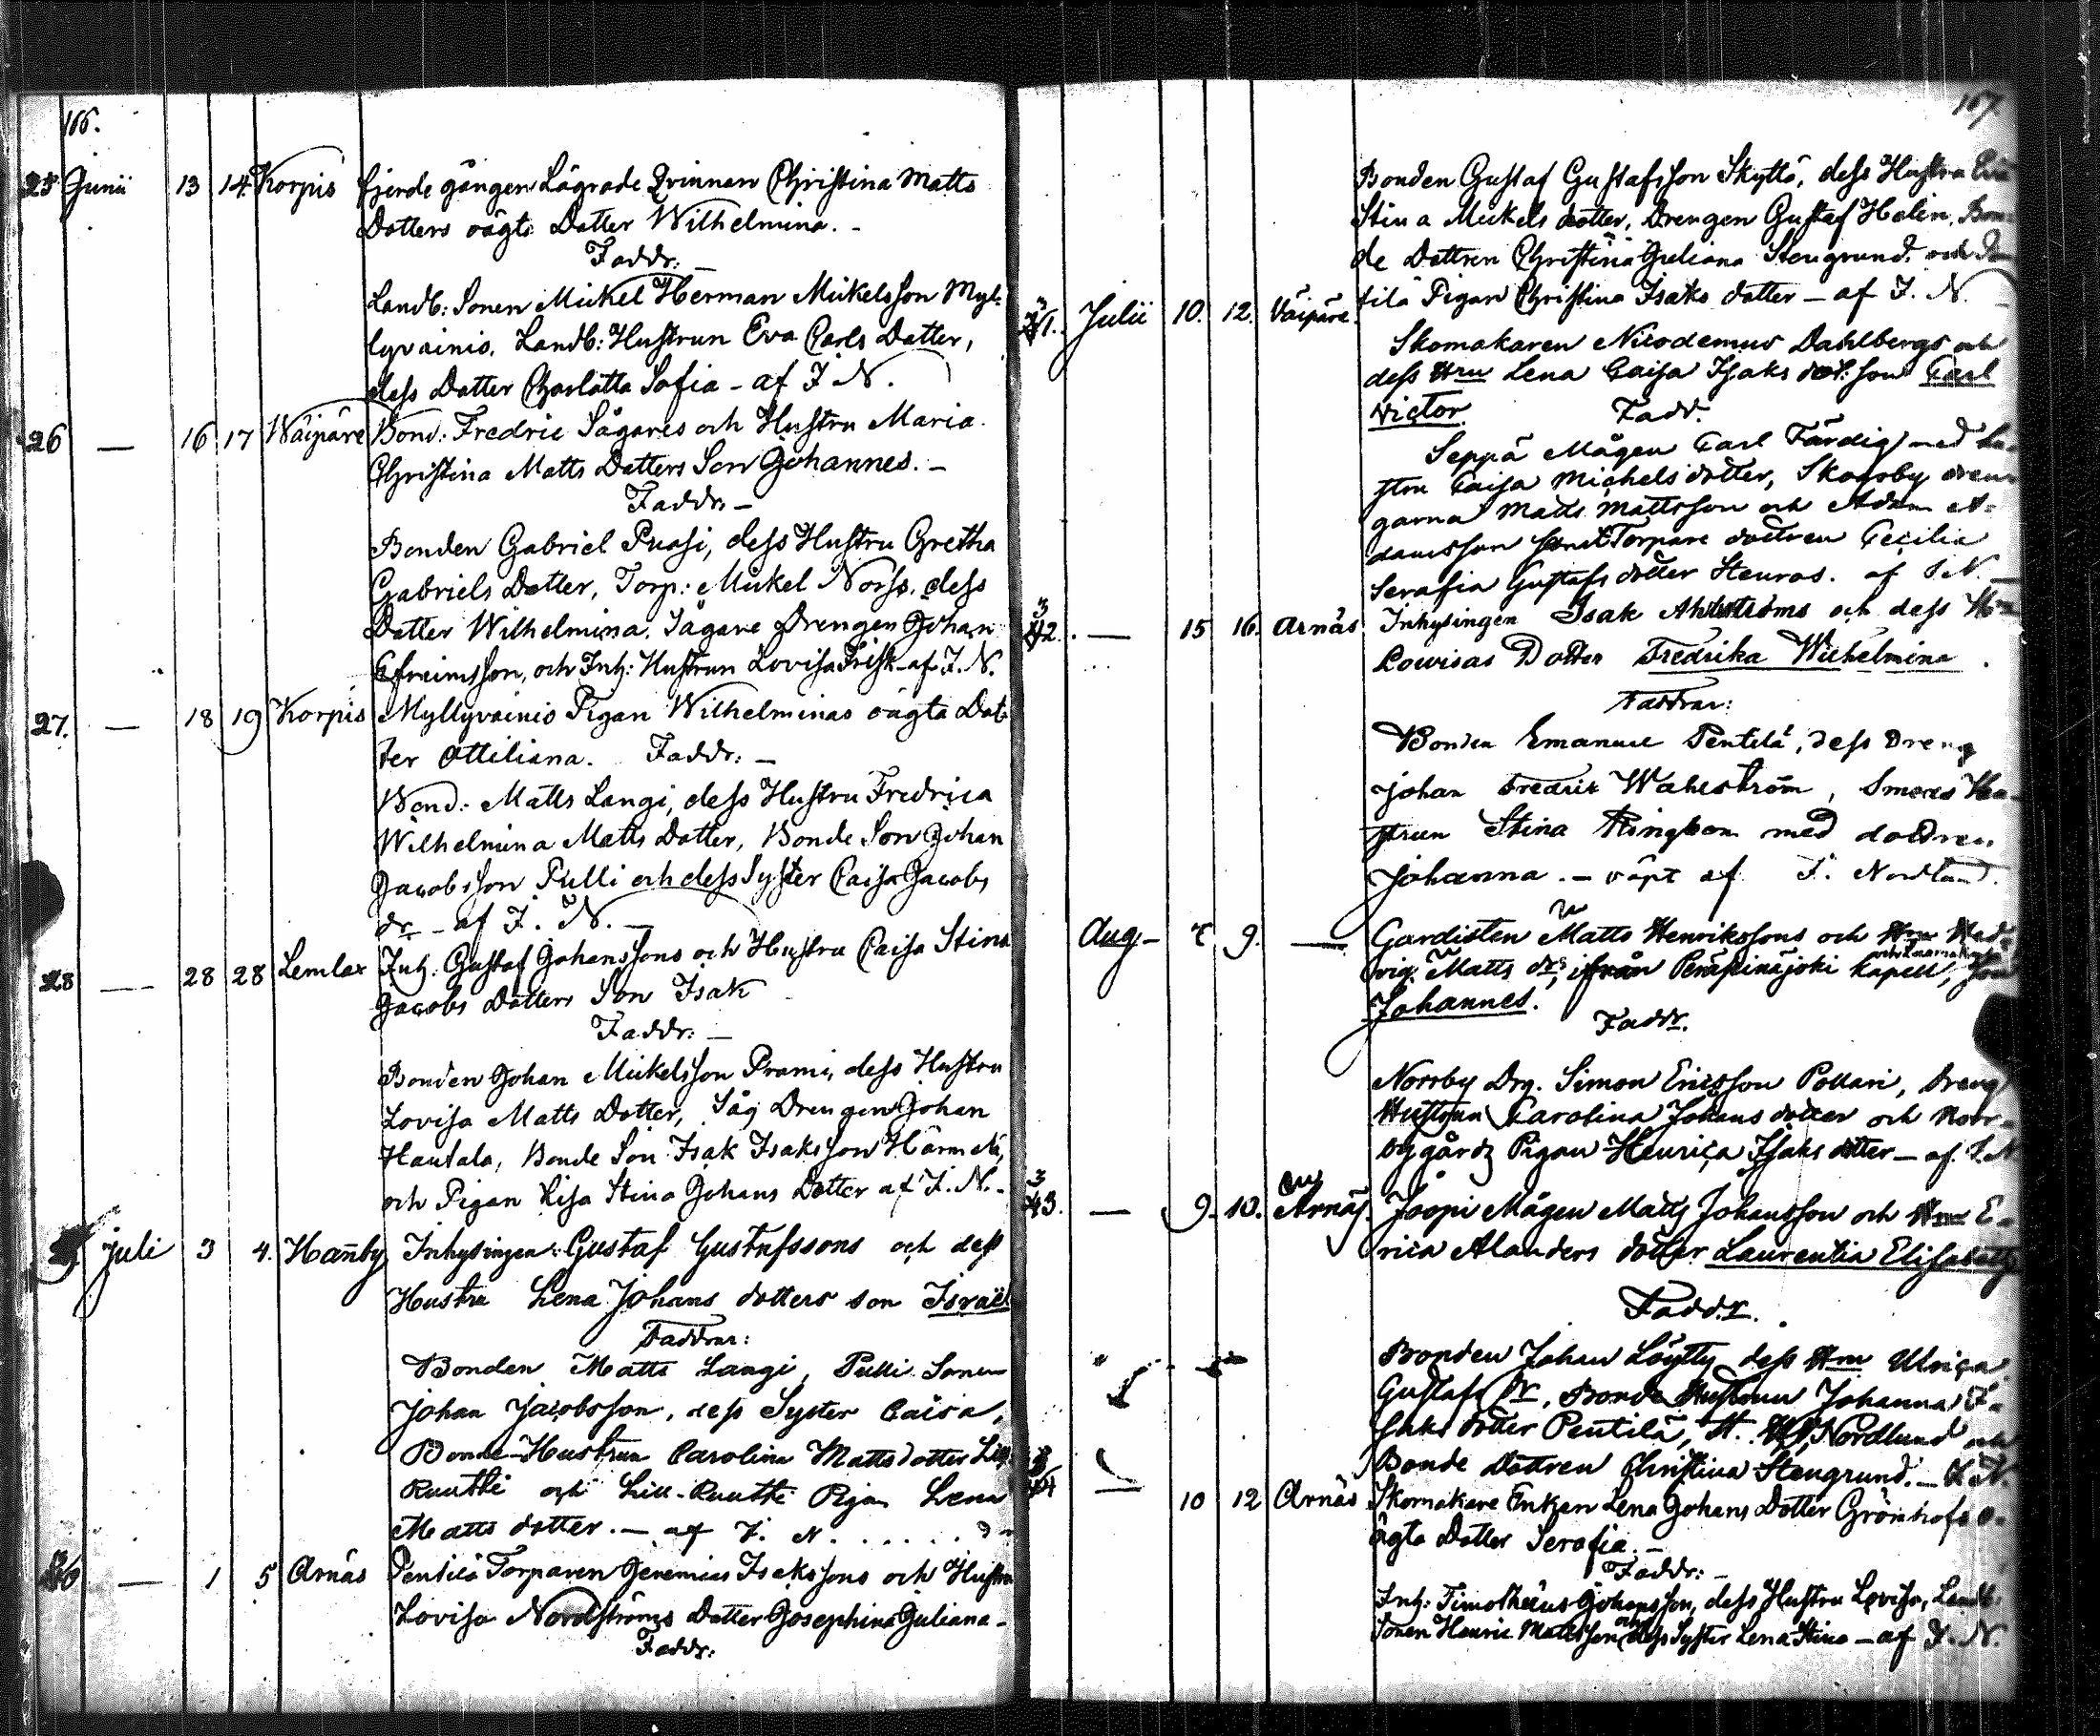 166.
25 Junii 13 14 Korpis fjerde gången Lägrade Qvinnan Christina Matts
Dotters oägta Dotter Wilhelmina. -
Faddr: -
Landb: Sonen Mickel Herman Mickelsson Myl-
lyvainio, Landb: Hustrun Eva Carls Dotter,
dess Dotter Charlotta Sofia - af J. N.
26 — 16 17 Wäipäre Bond: Fredric Sågares och Hustru Maria
Christina Matts Dotters Son Johannes. -
Faddr. -
Bonden Gabriel Puosi, dess Hustru Gretha
Gabriels Dotter, Torp: Mickel Norss, dess
Dotter Wilhelmina, Sågare Drengen Johan
Efreimsson, och Inh: Hustrun Lovisa Frisk - af J. N.
27. — 18 19 Korpis Myllyvainio Pigan Wilhelminas oägta Dot-
ter Ottiliana. Faddr: -
Bond: Matts Langi, dess Hustru Fredrica
Wilhelmina Matts Dotter, Bonde Son Johan
Jacobsson Pulli och dess Syster Caisa Jacobs
dr - af J. N. -
28 — 28 28 Lemlax Inh: Gustaf Johanssons och Hustru Caisa Stina
Jacobs Dotters Son Isak
Faddr: -
Bonden Johan Mickelsson Prami, dess Hustru
Lovisa Matts Dotter, Såg Drengen Johan
Hautala, Bonde Son Isak Isaksson Härmälä,
och Pigan Lisa Stina Johans Dotter af J. N. -
juli 3 4. Hanby Inhysingen Gustaf Gustafssons och dess
Hustru Lena Johans dotters son Israël
Faddrar:
Bonden Matts Langi, Pulli Sonen
Johan Jacobsson, dess Syster Caisa,
Bonde-Hustrun Carolina Matts dotter Lill
Ruuthi och Lill-Ruuthi Pigan Lena
Matts dotter. - af J. N.
— 1 5 Arnäs Pentilä Torparen Jeremias Isakssons och Hustru
Lovisa Nordströms Dotter Josephina Juliana -
Faddr:
167.
Bonden Gustaf Gustafsson Skyttä, dess Hustru Eva
Stina Mickels dotter, Drengen Gustaf Helin, Bon-
de Dottren Christina Juliana Stengrund och
tilä Pigan Christina Isaks dotter - af J. N. -
31. Julii 10. 12. Väipäre.
Skomakaren Nicodemus Dahlbergs och
dess Hru Lena Caisa Isaks dot: son Carl
Victor. Fadd.
Seppä Mågen Carl Färdig med hu-
stru Caisa Michels dotter, Skogsby dren-
garna Matts Mattsson och Adam A-
damsson samt Torpare dottren Cecilia
Serafia Gustafs dotter Stenros. af J. N. -
32. — 15 16. Arnäs Inhysingen Isak Ahlströms och dess Hru
Lowisas Dotter Fredrika Wilhelmina.
Faddrar:
Bonden Emanuel Pentilä, dess Dreng
Johan Fredrik Wahlström, Smeds Hu-
strun Stina Ringbom med dottren
Johanna. - döpt af J. Nordlund.
Aug - 9. — Gardisten Matts Henrikssons och Hru Hed-
vig Matts drs, ifrån Peräseinäjoki kapell, son
Johannes.
Faddr.
Norrby Drg. Simon Ericsson Pollari, dreng
Hustrun Carolina Johans dotter och Norr-
bygårds Pigan Henrica Isaks dotter - af J. N
33. — 9. 10. Arnäs. Jöopi Mågen Matts Johansson och Hru E-
rica Alanders dotter Laurentia Elisabeth
Faddr.
Bonden Johan Löytty dess Hru Ulrica
Gustafs dr, Bonde Hustrun Johanna I-
saks dotter Pentilä, Nordlund och
Bonde dottren Christina Stengrund. - J. N.
— 10 12 Arnäs Skomakare Enkan Lena Johans Dotter Grönhofs o-
ägta Dotter Serafia. -
Faddr: -
Inh: Timothëus Johansson, dess Hustru Lovisa, Landb:
Sonen Henric Mattsson och dess Syster Lena Stina - af J. N.